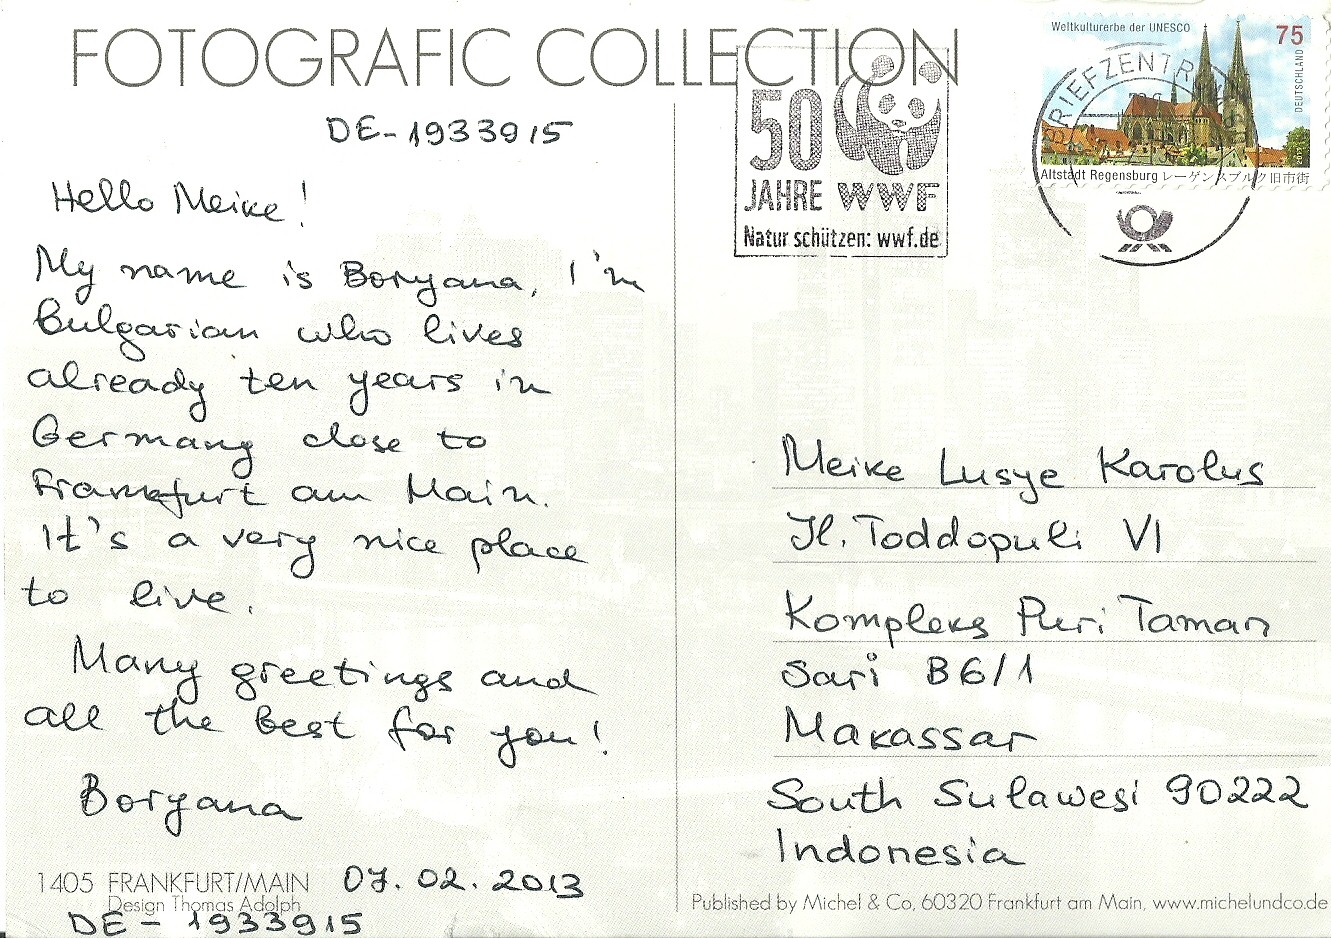 FOTOGRAFIC COLLECTION
DE-1933915
Hello Meike!
My name is Boryana, I'm
Bulgarian who lives
already ten years in
Germany close to
Frankfurt am Main.
It's a very nice place
to live.
Many greetings and
all the best for you!
Boryana
1405 FRANKFURT/MAIN 07.02.2013
Design Thomas Adolph
DE-1933915
50
JAHRE WWF
Natur schützen: wwf.de
Weltkulturerbe der UNESCO
75
DEUTSCHLAND
2011
BRIEFZENTRUM
Altstadt Regensburg レーゲンスブルク旧市街
Meike Lusye Karolus
Jl. Toddopuli VI
Kompleks Puri Taman
Sari B6/1
Makassar
South Sulawesi 90222
Indonesia
Published by Michel & Co, 60320 Frankfurt am Main, www.michelundco.de